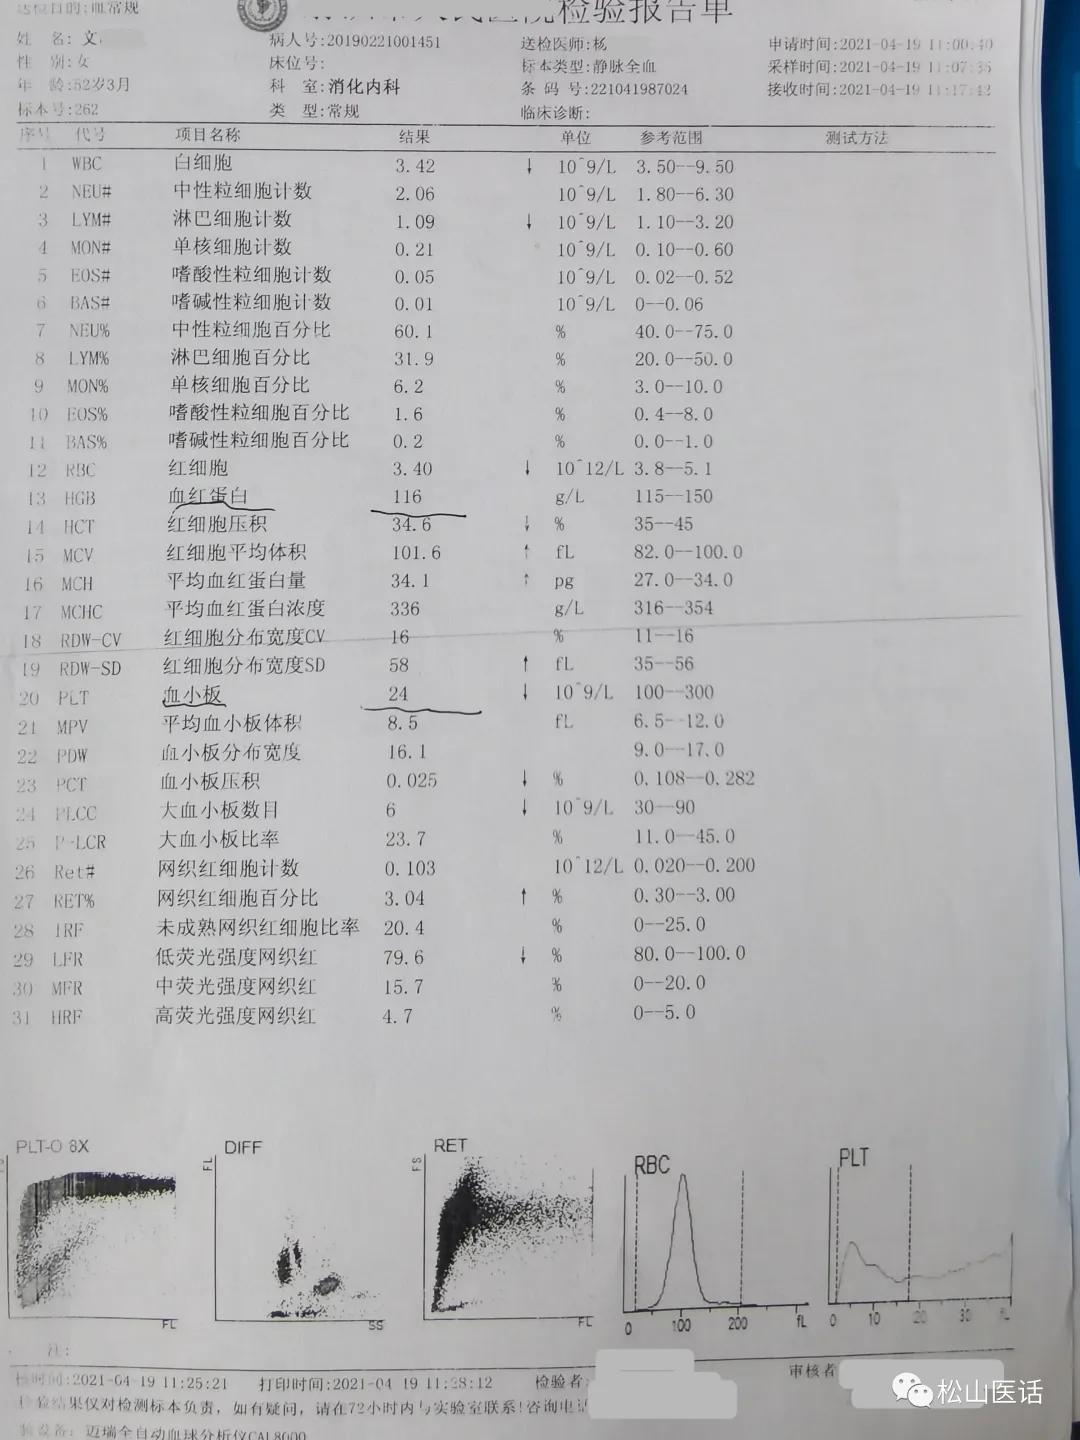 送检目的:血常规
检验报告单
姓 名: 文 病人号:20190221001451 送检医师:杨 申请时间:2021-04-19 11:00:40
性 别:女 床位号: 标本类型:静脉全血 采样时间:2021-04-19 11:07:35
年 龄:52岁3月 科 室:消化内科 条 码 号:221041987024 接收时间:2021-04-19 11:17:42
标本号:262 类 型:常规 临床诊断:
序号 代号 项目名称 结果 单位 参考范围 测试方法
1 WBC 白细胞 3.42 ↓ 10^9/L 3.50--9.50
2 NEU# 中性粒细胞计数 2.06 10^9/L 1.80--6.30
3 LYM# 淋巴细胞计数 1.09 ↓ 10^9/L 1.10--3.20
4 MON# 单核细胞计数 0.21 10^9/L 0.10--0.60
5 EOS# 嗜酸性粒细胞计数 0.05 10^9/L 0.02--0.52
6 BAS# 嗜碱性粒细胞计数 0.01 10^9/L 0--0.06
7 NEU% 中性粒细胞百分比 60.1 % 40.0--75.0
8 LYM% 淋巴细胞百分比 31.9 % 20.0--50.0
9 MON% 单核细胞百分比 6.2 % 3.0--10.0
10 EOS% 嗜酸性粒细胞百分比 1.6 % 0.4--8.0
11 BAS% 嗜碱性粒细胞百分比 0.2 % 0.0--1.0
12 RBC 红细胞 3.40 ↓ 10^12/L 3.8--5.1
13 HGB 血红蛋白 116 g/L 115--150
14 HCT 红细胞压积 34.6 ↓ % 35--45
15 MCV 红细胞平均体积 101.6 ↑ fL 82.0--100.0
16 MCH 平均血红蛋白量 34.1 ↑ pg 27.0--34.0
17 MCHC 平均血红蛋白浓度 336 g/L 316--354
18 RDW-CV 红细胞分布宽度CV 16 % 11--16
19 RDW-SD 红细胞分布宽度SD 58 ↑ fL 35--56
20 PLT 血小板 24 ↓ 10^9/L 100--300
21 MPV 平均血小板体积 8.5 fL 6.5--12.0
22 PDW 血小板分布宽度 16.1 9.0--17.0
23 PCT 血小板压积 0.025 ↓ % 0.108--0.282
24 PLCC 大血小板数目 6 ↓ 10^9/L 30--90
25 P-LCR 大血小板比率 23.7 % 11.0--45.0
26 Ret# 网织红细胞计数 0.103 10^12/L 0.020--0.200
27 RET% 网织红细胞百分比 3.04 ↑ % 0.30--3.00
28 IRF 未成熟网织红细胞比率 20.4 % 0--25.0
29 LFR 低荧光强度网织红 79.6 ↓ % 80.0--100.0
30 MFR 中荧光强度网织红 15.7 % 0--20.0
31 HRF 高荧光强度网织红 4.7 % 0--5.0
PLT-O 8X DIFF RET RBC PLT
FL FS
FL SS FL 0 100 200 fL 0 10 20 30 fL
注:
核时间:2021-04-19 11:25:21 打印时间:2021-04 19 11:38:12 检验者: 审核者
检验结果仅对检测标本负责,如有疑问,请在72小时内与实验室联系!咨询电话
验设备: 迈瑞全自动血球分析仪CAL8000
松山医话